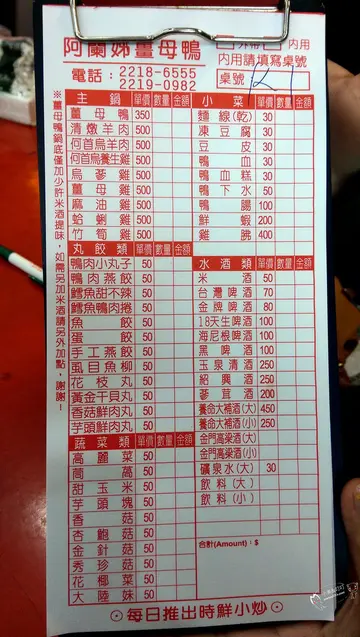 阿蘭姊薑母鴨
電話：2218-6555
2219-0982
外帶 內用
內用請填寫桌號
桌號 K1
※薑母鴨鍋底僅加少許米酒提味，如需另加米酒請另外加點，謝謝！
主鍋 單價 數量 金額
薑母鴨 350
清燉羊肉 500
何首烏羊肉 500
何首烏養生雞 500
烏蔘雞 500
薑母雞 500
麻油雞 500
蛤蜊雞 500
竹筍雞 500
丸餃類 單價 數量 金額
鴨肉小丸子 50
鴨肉燕餃 50
鱈魚甜不辣 50
鱈魚鴨肉捲 50
魚餃 50
蛋餃 50
手工燕餃 50
虱目魚柳 50
花枝丸 50
黃金干貝丸 50
香菇鮮肉丸 50
芋頭鮮肉丸 50
蔬菜類 單價 數量 金額
高麗菜 50
茼萵 50
甜玉米 50
芋頭塊 50
香菇 50
杏鮑菇 50
金針菇 50
秀珍菇 50
花椰菜 50
大陸妹 50
小菜 單價 數量 金額
麵線(乾) 30
凍豆腐 30
豆皮 30
鴨血 30
鴨血糕 30
鴨下水 50
鴨腸 100
鮮蝦 200
雞佛 400
水酒類 單價 數量 金額
米酒 50
台灣啤酒 70
金牌啤酒 80
18天生啤酒 100
海尼根啤酒 100
黑啤酒 100
玉泉清酒 250
紹興酒 250
蔘茸酒 200
養命大補酒(大) 450
養命大補酒(小) 250
金門高粱酒(大)
金門高粱酒(小)
礦泉水(大) 30
飲料(大)
飲料(小)
合計(Amount)：$
⊙每日推出時鮮小炒⊙